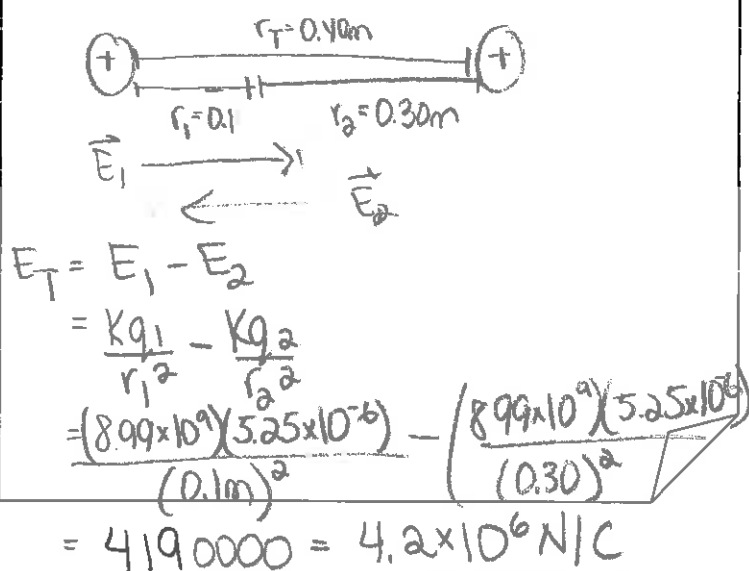 r_T = 0.40m
+ +
r₁ = 0.1 r₂ = 0.30m
E⃗₁
E⃗₂
E_T = E₁ - E₂
= Kq₁/r₁² - Kq₂/r₂²
= (8.99×10⁹)(5.25×10⁻⁶)/(0.1m)² - (8.99×10⁹)(5.25×10⁻⁶)/(0.30)²
= 4190000 = 4.2×10⁶ N/C